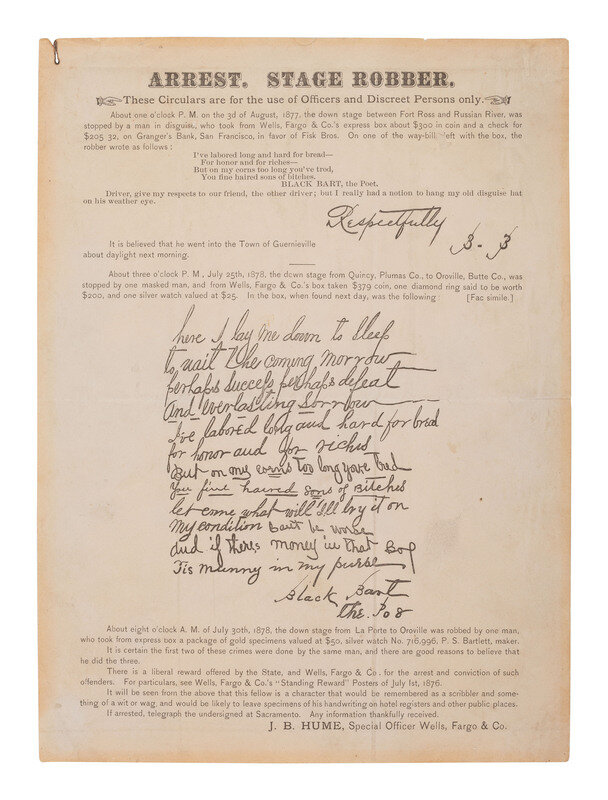 ARREST. STAGE ROBBER.
These Circulars are for the use of Officers and Discreet Persons only.
About one o'clock P. M. on the 3d of August, 1877, the down stage between Fort Ross and Russian River, was
stopped by a man in disguise, who took from Wells, Fargo & Co.'s express box about $300 in coin and a check for
$205 32, on Granger's Bank, San Francisco, in favor of Fisk Bros. On one of the way-bills left with the box, the
robber wrote as follows:
I've labored long and hard for bread—
For honor and for riches—
But on my corns too long you've tred,
You fine haired sons of bitches.
BLACK BART, the Poet.
Driver, give my respects to our friend, the other driver; but I really had a notion to hang my old disguise hat
on his weather eye.
Respectfully B - B
It is believed that he went into the Town of Guernieville
about daylight next morning.
About three o'clock P. M., July 25th, 1878, the down stage from Quincy, Plumas Co., to Oroville, Butte Co., was
stopped by one masked man, and from Wells, Fargo & Co.'s box taken $379 coin, one diamond ring said to be worth
$200, and one silver watch valued at $25. In the box, when found next day, was the following [Fac simile.]
here I lay me down to Sleep
to wait the coming morrow
perhaps success perhaps defeat
And everlasting Sorrow
I've labored long and hard for bred
for honor and for riches
But on my corns too long youve tred
You fine haired sons of Bitches
let come what will I'll try it on
My condition cant be worse
and if theres money in that Box
Tis munny in my purse
Black Bart
the. Po8
About eight o'clock A. M. of July 30th, 1878, the down stage from La Porte to Oroville was robbed by one man,
who took from express box a package of gold specimens valued at $50, silver watch No. 716,996, P. S. Bartlett, maker.
It is certain the first two of these crimes were done by the same man, and there are good reasons to believe that
he did the three.
There is a liberal reward offered by the State, and Wells, Fargo & Co. for the arrest and conviction of such
offenders. For particulars, see Wells, Fargo & Co.'s "Standing Reward" Posters of July 1st, 1876.
It will be seen from the above that this fellow is a character that would be remembered as a scribbler and some-
thing of a wit or wag, and would be likely to leave specimens of his handwriting on hotel registers and other public places.
If arrested, telegraph the undersigned at Sacramento. Any information thankfully received.
J. B. HUME, Special Officer Wells, Fargo & Co.